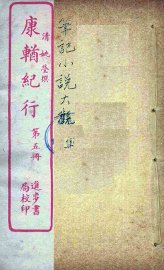 康輶紀行
清姚瑩撰
第五冊
進步書
局校印
筆記小說大觀